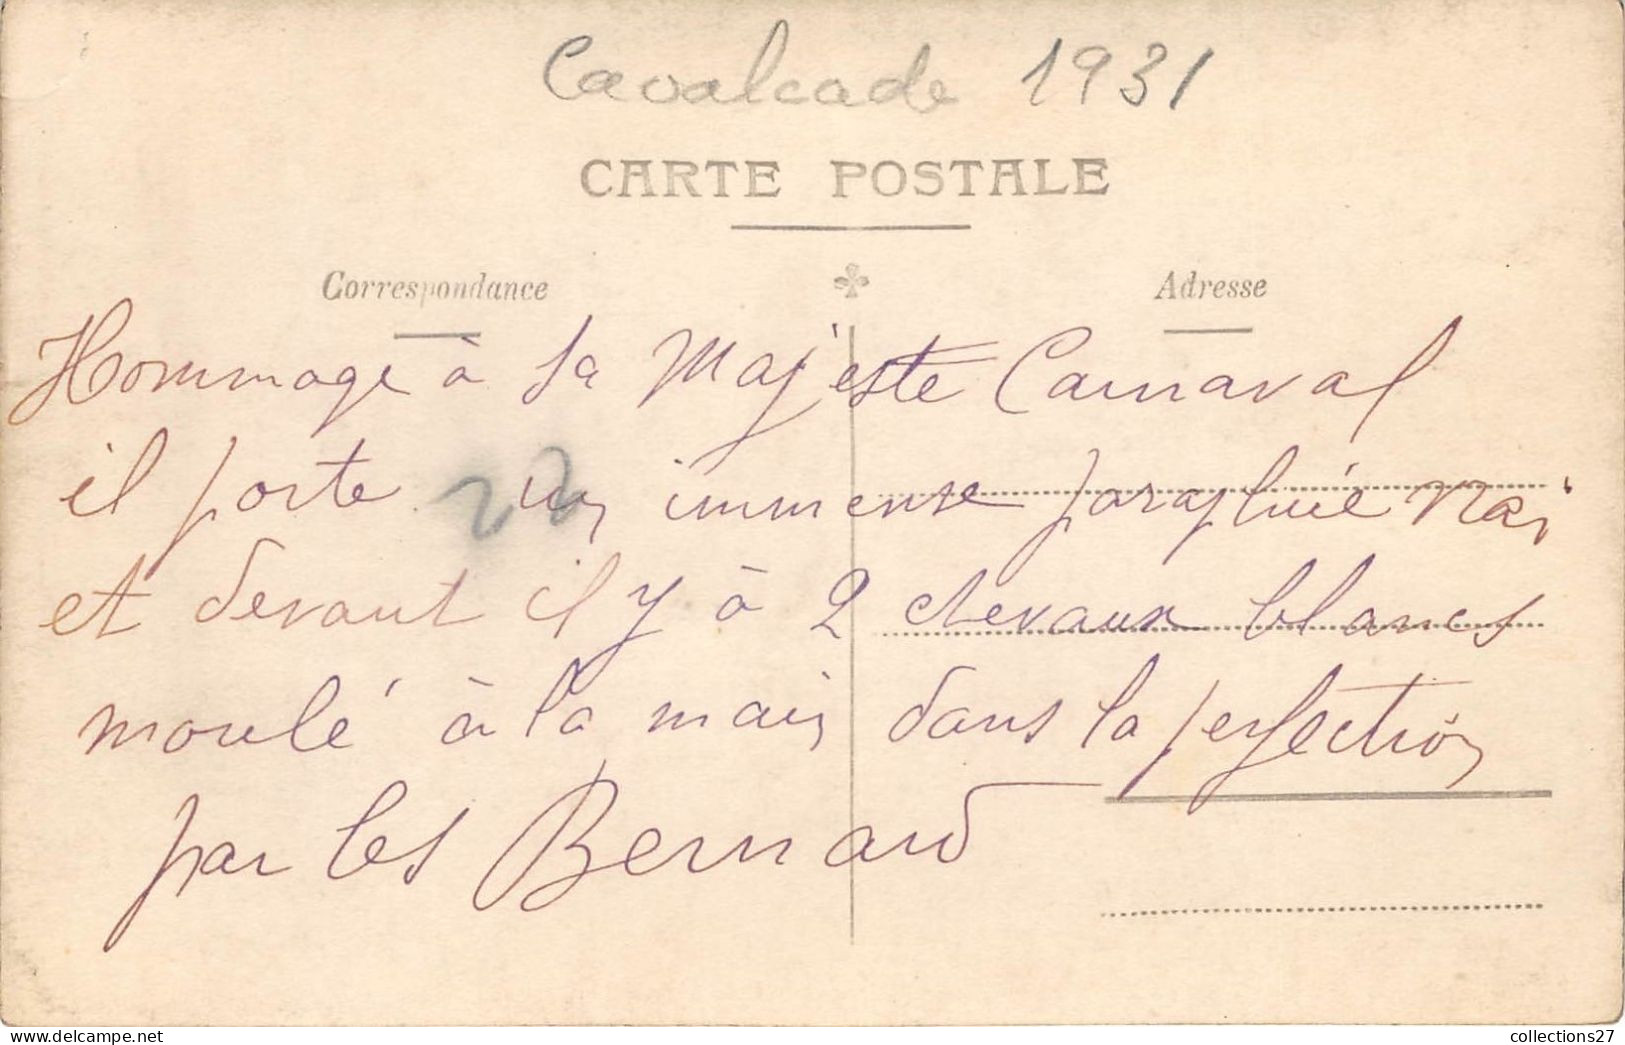 Cavalcade 1931
CARTE POSTALE
Correspondance
Adresse
Hommage à Sa Majesté Carnaval
il porte un immense parapluie
et devant il y à 2 chevaux blancs
moulé à la main dans la perfection
par les Bernard
collections27